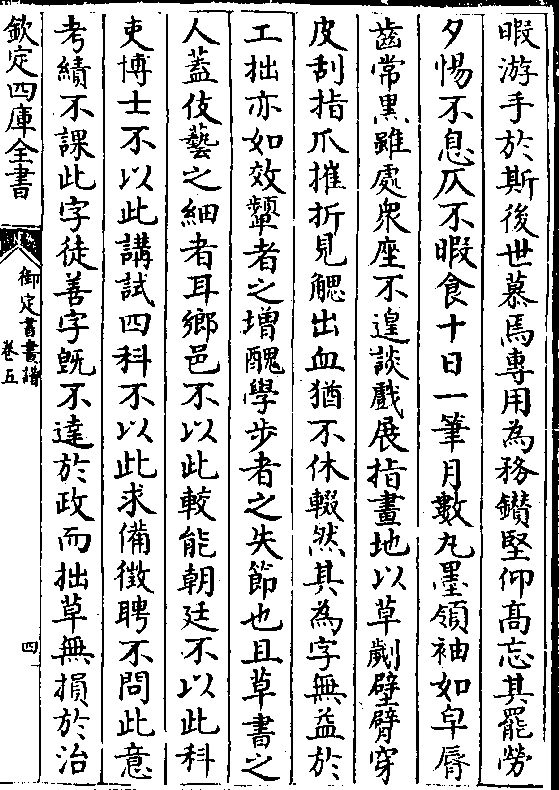 暇游手於斯後世慕焉專用為務鑚堅仰髙忘其罷勞
夕惕不息仄不暇食十日一筆月數丸墨領袖如皁唇
齒常黒雖處衆座不遑談戲展指畫地以草劌壁臂穿
皮刮指爪摧折見䚡出血猶不休輟然其為字無益於
工拙亦如效顰者之増醜學步者之失節也且草書之
人蓋伎藝之細者耳鄉邑不以此較能朝廷不以此科
吏博士不以此講試四科不以此求備徵聘不問此意
考績不課此字徒善字旣不達於政而拙草無損於治
欽定四庫全書
御定書畫譜
卷五
四